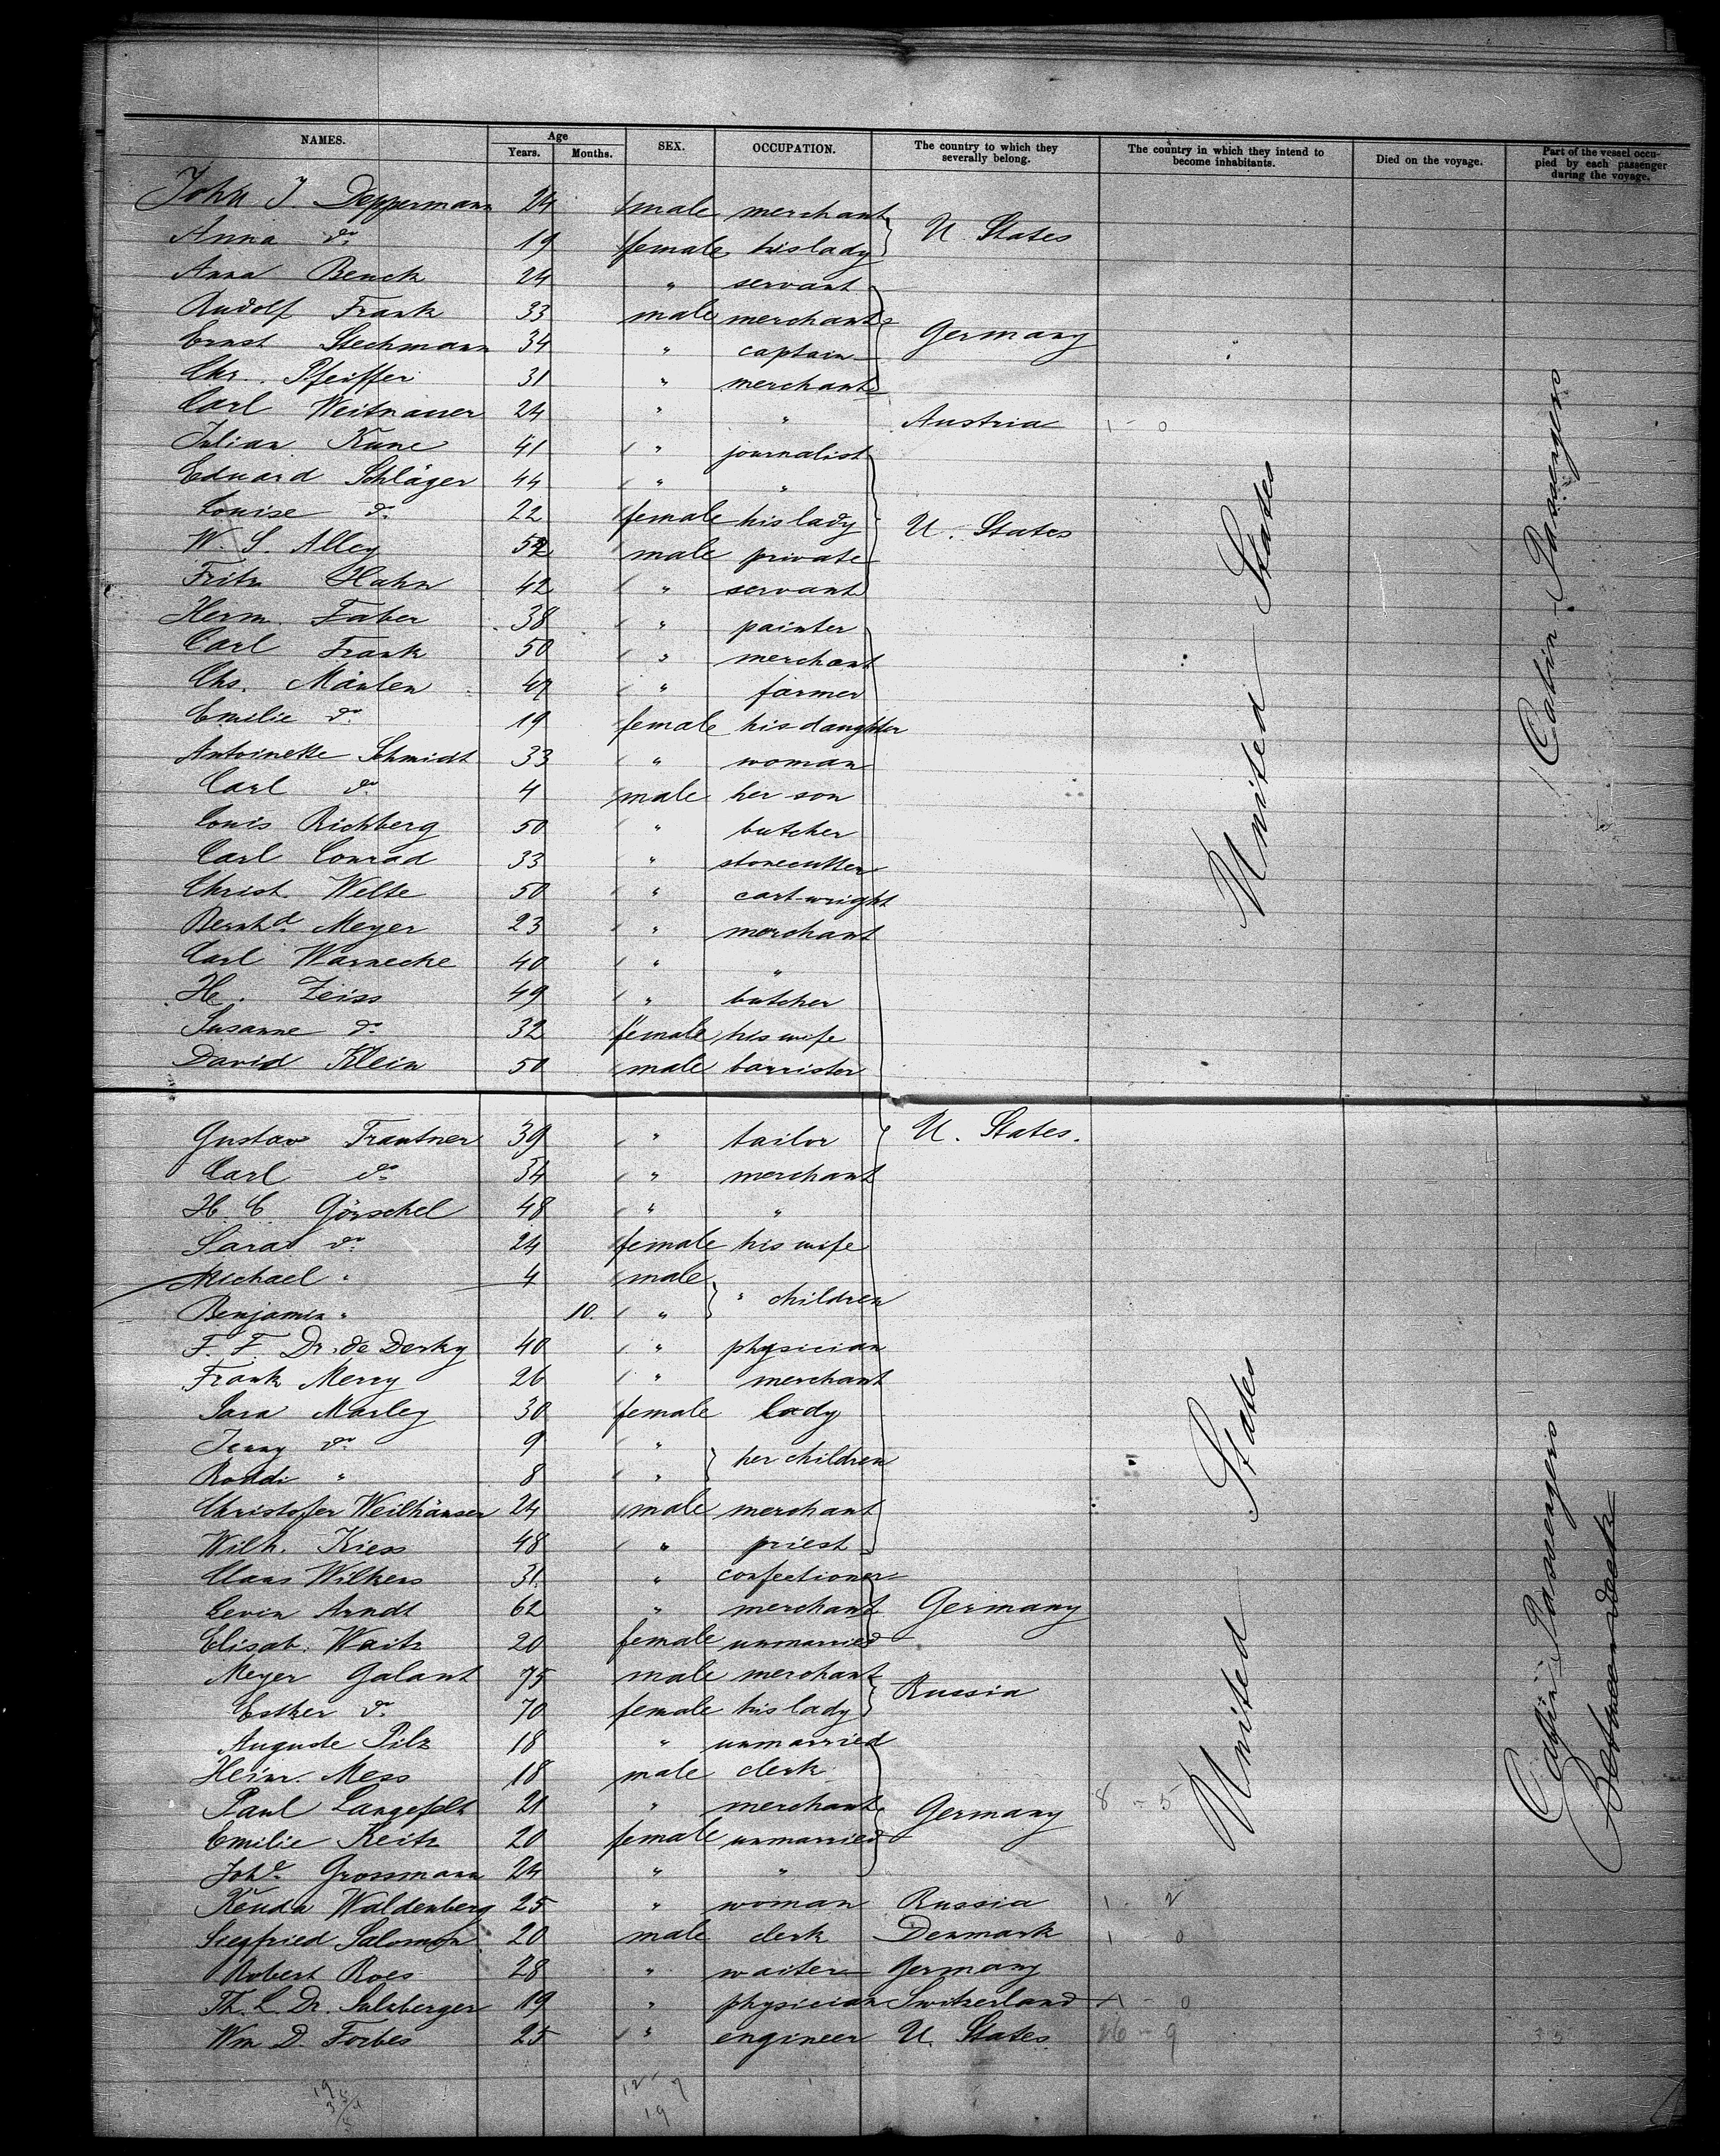 NAMES. Age Years. Months. SEX. OCCUPATION. The country to which they severally belong. The country in which they intend to become inhabitants. Died on the voyage. Part of the vessel occupied by each passenger during the voyage.
John J. Deppermann 24 male merchant
Anna do 19 female his lady U. States
Anna Benck 24 " servant
Rudolf Frank 33 male merchant
Ernst Stechmann 34 " captain Germany
Chr. Pfeiffer 31 " merchant
Carl Weitnauer 24 " " Austria 1 - 0
Julian Kune 41 " journalist
Eduard Schläger 44 " "
Louise do 22 female his lady U. States
W. S. Alley 52 male private
Fritz Hahn 42 " servant
Herm. Faber 38 " painter
Carl Frank 50 " merchant
Chs. Mänlen 47 " farmer
Emilie do 19 female his daughter
Antoinette Schmidt 33 " woman
Carl do 4 male her son
Louis Richberg 50 " butcher
Carl Conrad 33 " stonecutter
Christ. Welte 50 " cart-wright
Bernhd Meyer 23 " merchant
Carl Warnecke 40 " "
He. Zeiss 49 " butcher
Susanne do 32 female his wife
David Klein 50 male barrister
United States
Cabin-Passengers
Gustav Trautner 39 " tailor U. States.
Carl do 34 " merchant
H. C. Görschel 48 " "
Sara do 24 female his wife
Michael " 4 male
Benjamin " 10. " " children
F. F. Dr. de Derky 40 " physician
Frank Merry 26 " merchant
Sara Marley 30 female lady
Jenny do 9 "
Roddi " 8 " her children
Christofer Weilhäuser 24 male merchant
Wilh. Kiess 48 " priest
Claus Wilkens 31 " confectioner
Levin Arndt 62 " merchant Germany
Elisab. Waitz 20 female unmarried
Meyer Galant 75 male merchant
Esther do 70 female his lady Russia
Auguste Pilz 18 " unmarried
Heinr. Mess 18 male clerk
Paul Langefeldt 21 " merchant Germany 8 - 5
Emilie Keitz 20 female unmarried
Johe Grossmann 24 " "
Keuda Waldenberg 25 " woman Russia 1 - 2
Siegfried Salomon 20 male clerk Denmark 1 - 0
Robert Roes 28 " waiter Germany
Th. L. Dr. Sulzberger 19 " physician Switzerland 1 - 0
Wm D. Forbes 25 " engineer U. States 26 - 9 35
United States
Cabin-Passengers
Betweendeck
12 7
19